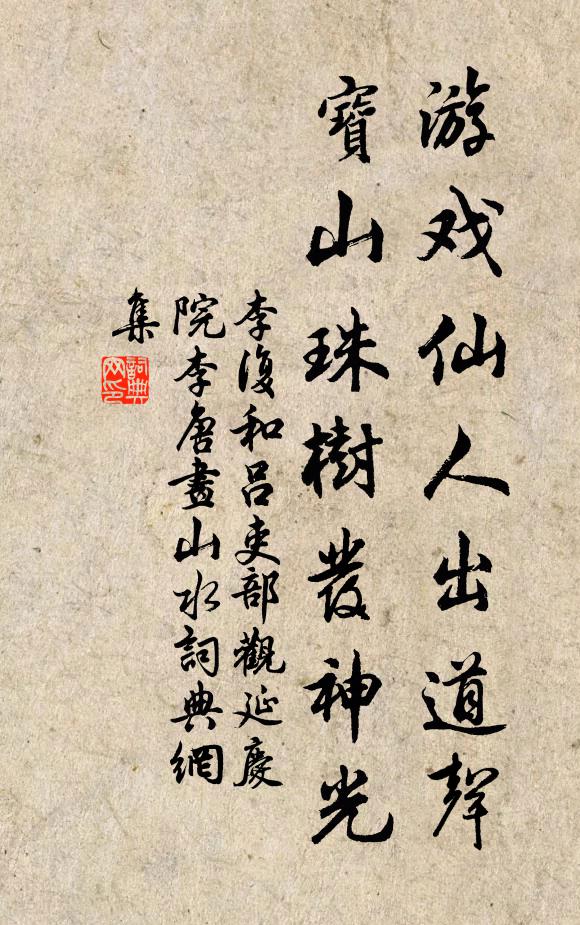 游戏仙人出道聲
寶山珠樹發神光
李復和呂吏部觀延慶
院李唐畫山水詞典網
集
詞典
网印